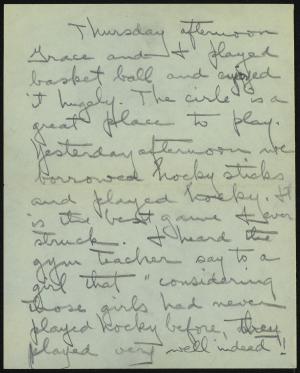 Thursday afternoon
Grace and I played
basket ball and enjoyed
it hugely. The cirle is a
great place to play.
Yesterday afternoon we
borrowed hocky sticks
and played hocky. It
is the best game I ever
struck. I heard the
gym teacher say to a
girl that "considering
those girls had never
played hocky before, they
played very well indeed!